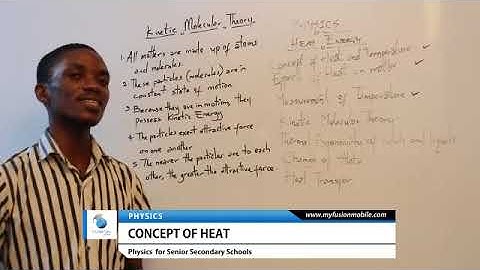 Kinetic Molecular Theory
1. All matters are made up of atoms
and molecules.
2. These particles (molecules) are in
constant state of motion
3. Because they are in motion, they
possess Kinetic Energy
4. The particles exert attractive force
on one another
5. The nearer the particles are to each
other, the greater the attractive force.
PHYSICS
HEAT ENERGY
Concept of Heat and Temperature ✓
Effects of Heat on matter ✓
Measurement of Temperature ✓
Kinetic Molecular Theory
Thermal Expansivity of solids and liquids
Change of State
Heat Transfer
PHYSICS
www.myfusionmobile.com
CONCEPT OF HEAT
Physics for Senior Secondary Schools